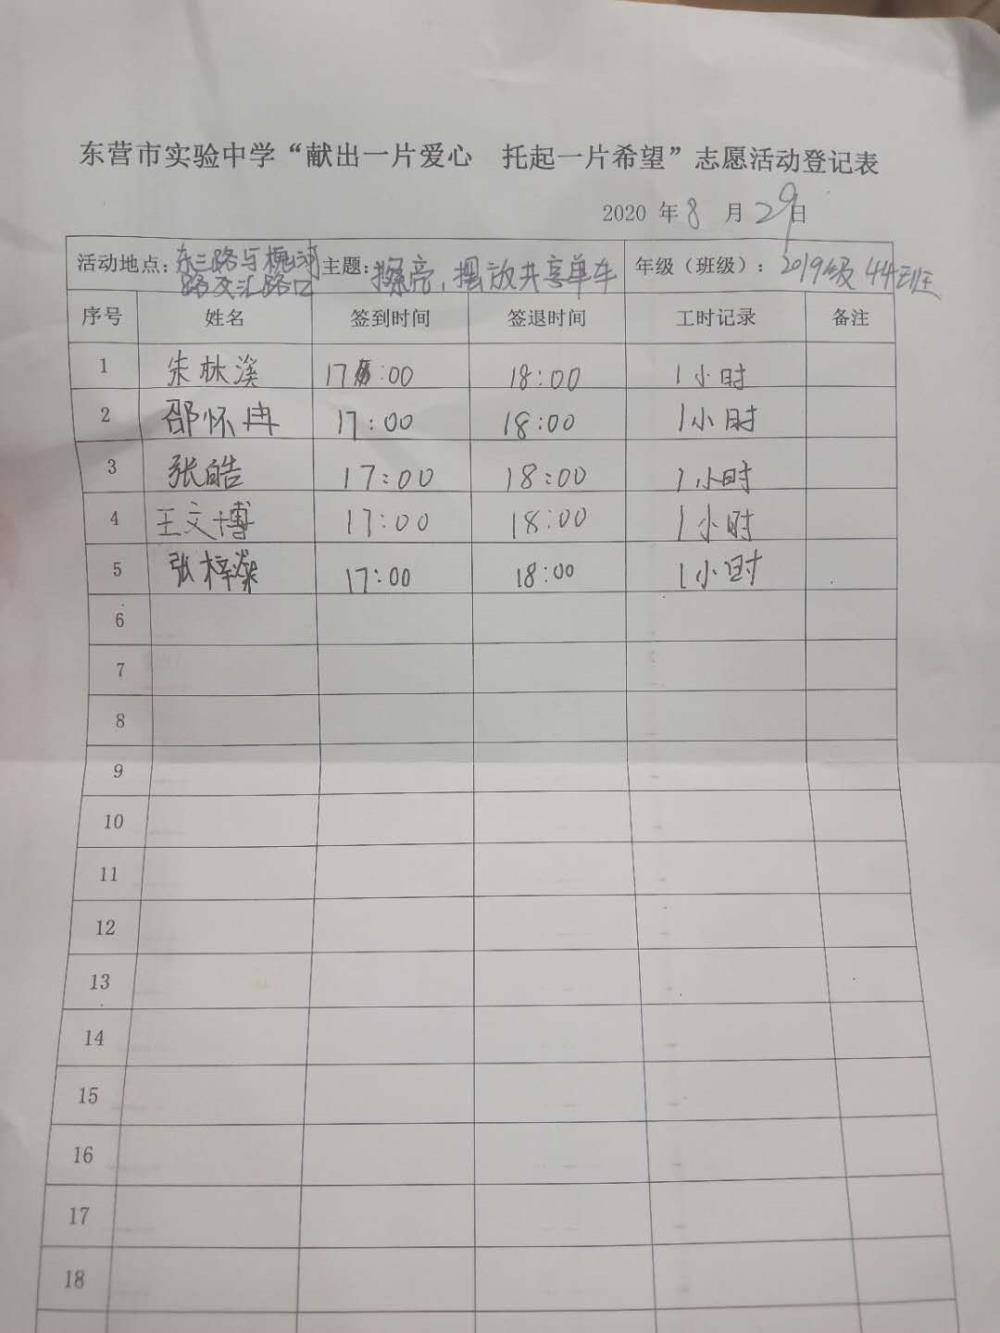 东营市实验中学“献出一片爱心 托起一片希望”志愿活动登记表
2020 年 8 月 29 日
活动地点：东三路与槐河路交汇路口 主题：擦亮，摆放共享单车 年级（班级）：2019级 44班
序号 姓名 签到时间 签退时间 工时记录 备注
1 朱林溪 17:00 18:00 1小时
2 邵怀冉 17:00 18:00 1小时
3 张皓 17:00 18:00 1小时
4 王文博 17:00 18:00 1小时
5 张梓燊 17:00 18:00 1小时
6
7
8
9
10
11
12
13
14
15
16
17
18